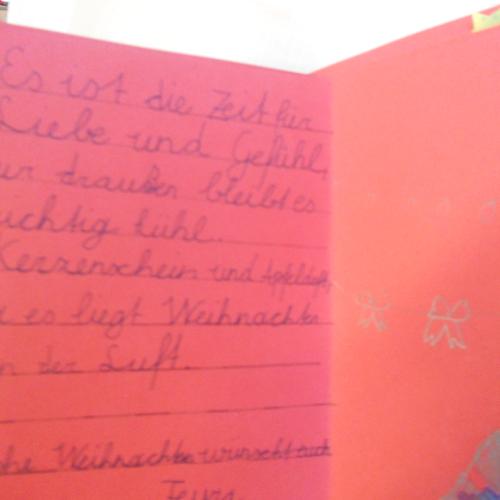 Es ist die Zeit für
Liebe und Gefühl,
ur draußen bleibt es
ichtig kühl.
Kerzenschein und Apfelduft,
es liegt Weihnachten
n der Luft.
che Weihnachten wünscht euch